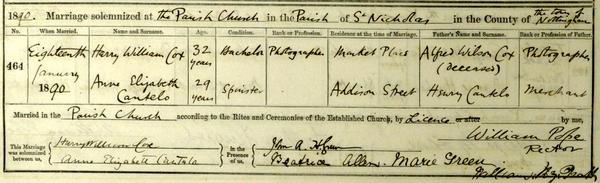 1890. Marriage solemnized at the Parish Church in the Parish of St Nicholas in the County of the town of Nottingham
No. When Married. Name and Surname. Age. Condition. Rank or Profession. Residence at the time of Marriage. Father's Name and Surname. Rank or Profession of Father.
464 Eighteenth January 1890 Harry William Cox 32 years Bachelor Photographer Market Place Alfred Wilson Cox (deceased) Photographer
Anne Elizabeth Cantelo 29 years Spinster Addison Street Henry Cantelo Merchant
Married in the Parish Church according to the Rites and Ceremonies of the Established Church, by Licence or after by me,
William Pope
Rector
This Marriage was solemnized between us, Harry William Cox
Anne Elizabeth Cantelo
in the Presence of us,
Beatrice Allen. Marie Green
William